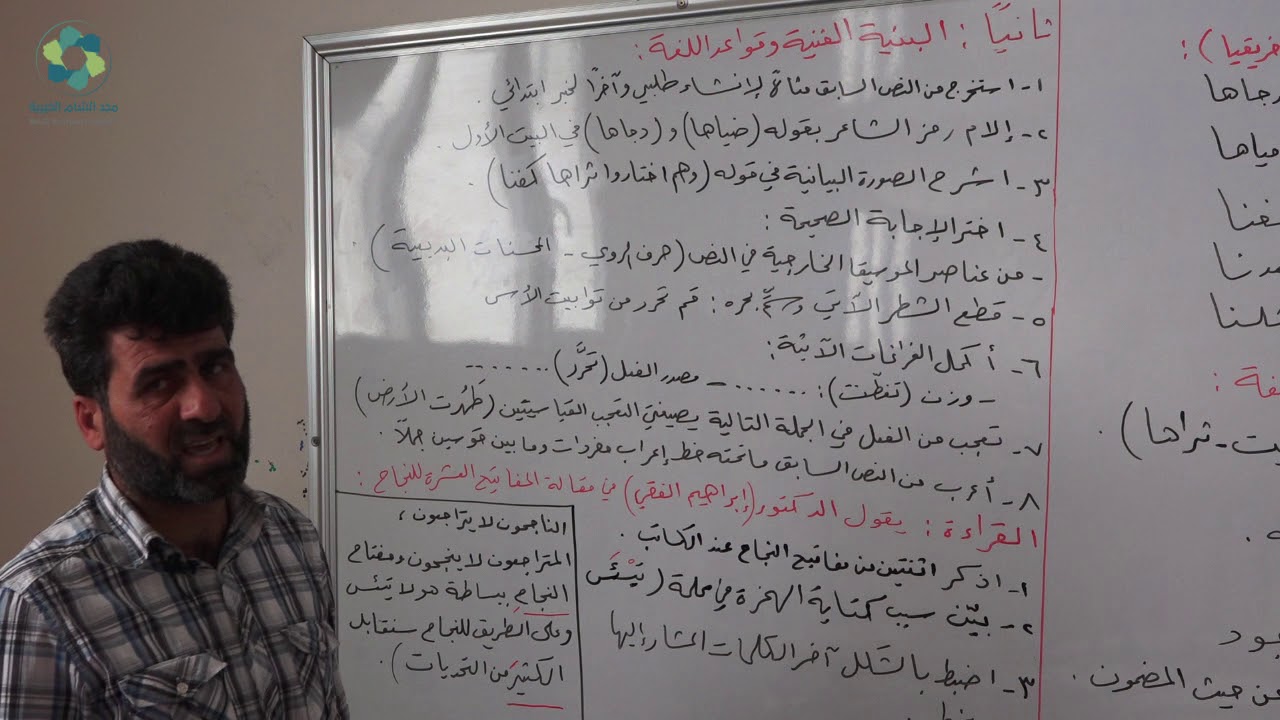 ثانيًا: البنية الفنية وقواعد اللغة:
١- استخرج من النص السابق مثالاً لإنشاء طلبي وآخرًا لخبر ابتدائي.
٢- إلام رمز الشاعر بقوله (ضياها) و (دجاها) في البيت الأول.
٣- اشرح الصورة البيانية في قوله (وهم اختاروا ثراها كفنا).
٤- اختر الإجابة الصحيحة:
- من عناصر الموسيقا الخارجية في النص (حرف الروي - المحسنات البديعية).
٥- قطع الشطر الآتي وسمِّ بحره: قم تحرر من توابيت الأسى
٦- أكمل الفراغات الآتية:
- وزن (تفطّنت): ....... - مصدر الفعل (تحرَّر) .......
٧- تعجب من الفعل في الجملة التالية بصيغتي التعجب القياسيتين (طَهُرت الأرض)
٨- أعرب من النص السابق ماتحته خط إعراب مفردات وما بين قوسين جملاً.
القراءة: يقول الدكتور (إبراهيم الفقي) في مقالة المفاتيح العشرة للنجاح:
١- اذكر اثنتين من مفاتيح النجاح عند الكاتب.
٢- بيّن سبب كتابة الهمزة في كلمة (يَيْئَس
٣- اضبط بالشكل آخر الكلمات المشار إليها
الناجحون لا يتراجعون،
المتراجعون لا ينجحون ومفتاح
النجاح ببساطة هو لا تيئس
وعلى الطريق للنجاح ستقابل
الكثير من التحديات).
فريقيا):
دجاها
مياها
كفنا
شلنا
فة:
يت - ثراها).
ود
من حيث المضمون.